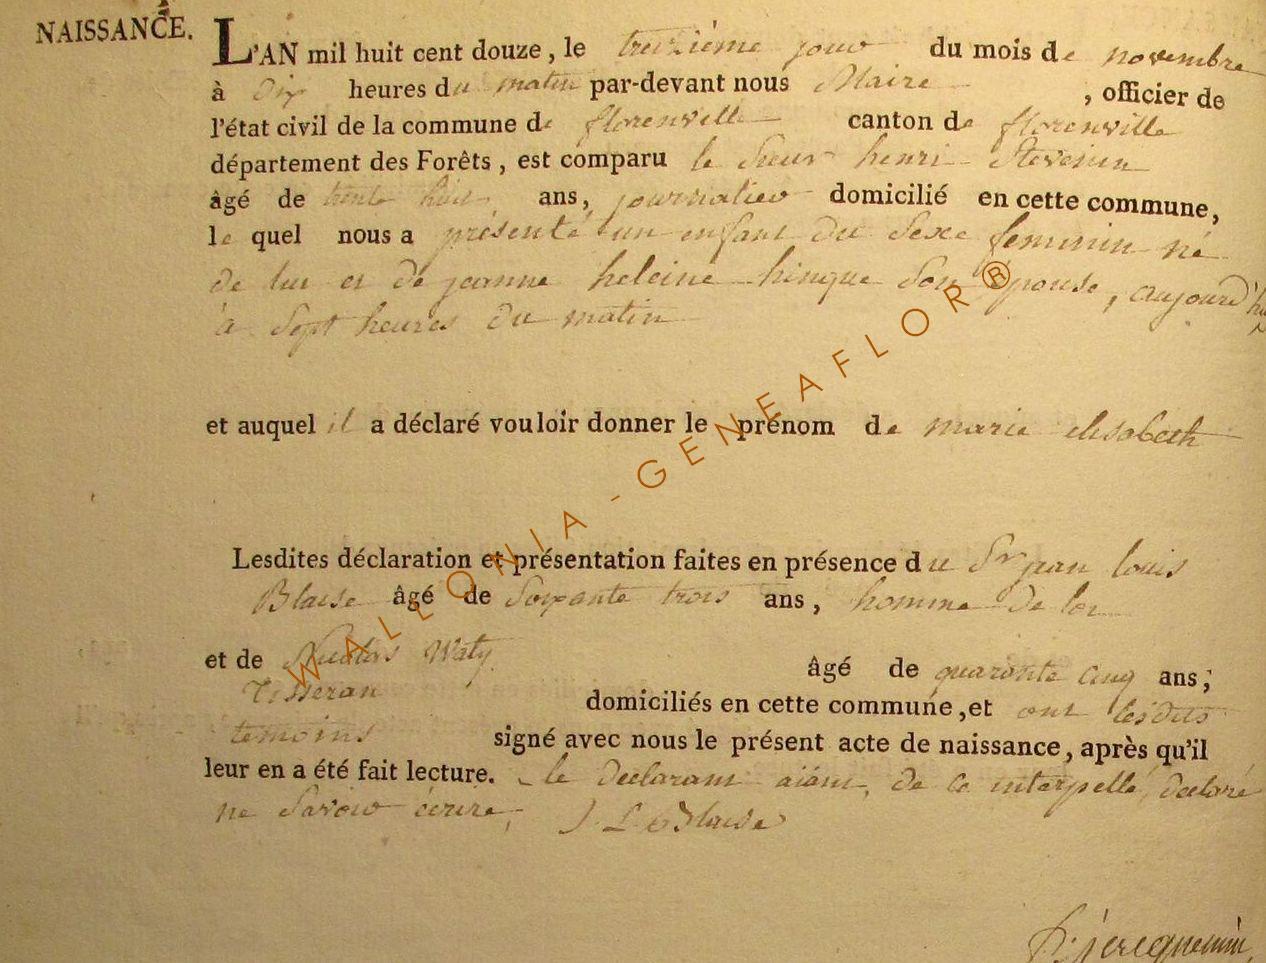 NAISSANCE.
L'AN mil huit cent douze, le treizième jour du mois de novembre
à dix heures du matin par-devant nous Maire , officier de
l'état civil de la commune de florenville canton de florenville
département des Forêts, est comparu le Sieur henri Stevenin
âgé de trente huit ans, journalier domicilié en cette commune,
le quel nous a présenté un enfant du Sexe feminin né
de lui et de jeanne heleine hinque Son épouse, aujourd'hui
à Sept heures du matin
et auquel il a déclaré vouloir donner le prénom de marie elisabeth
Lesdites déclaration et présentation faites en présence du Sr jean louis
Blaise âgé de Soixante trois ans, homme de loi
et de Nicolas Waty âgé de quarante cinq ans;
Tisseran domiciliés en cette commune, et ont lesdits
temoins signé avec nous le présent acte de naissance, après qu'il
leur en a été fait lecture. le declarant aiant, de ce interpellé, declaré
ne Savoir écrire, J L Blaise
WALLONIA-GENEAFLOR®